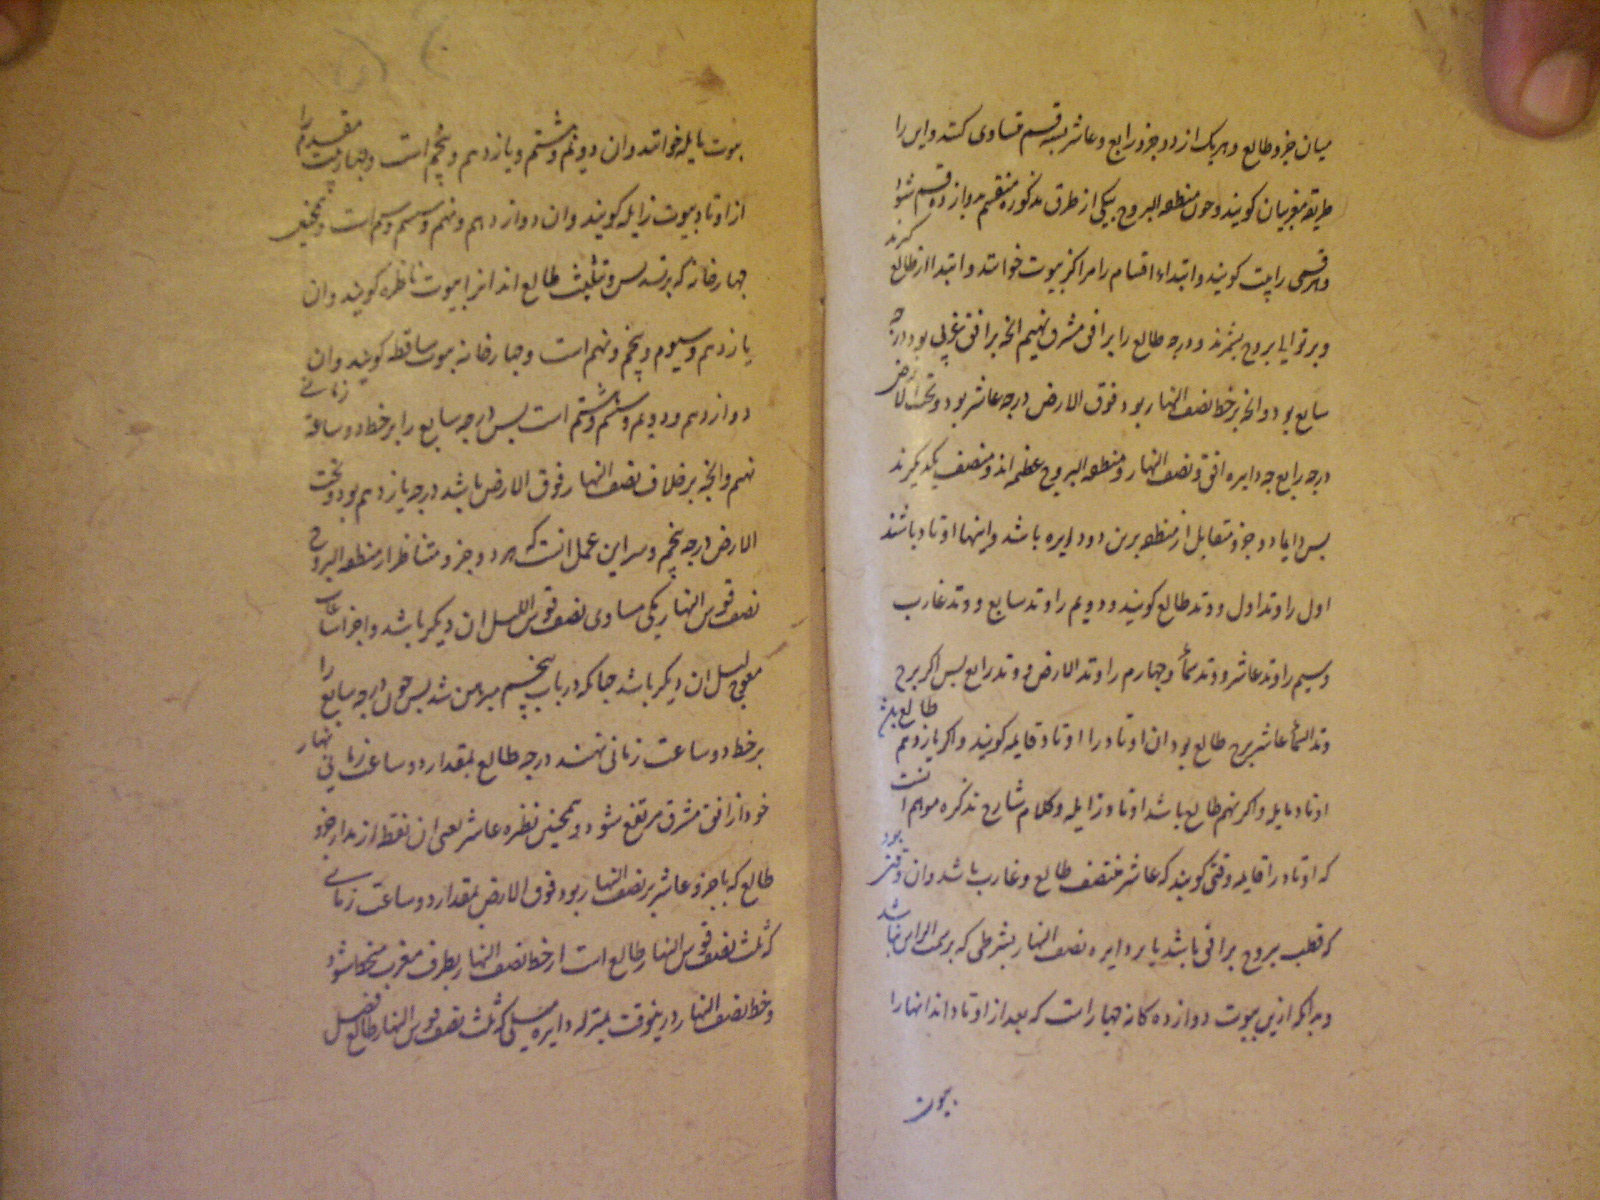 میان جزو طالع و هریک از دو جزو رابع و عاشر بسه قسم متساوی کنند و این را
طریقه مغربیان کویند و چون منطقه البروج بیکی از طرق مذکوره منقسم بدوازده قسم شود
و هر قسمی را بیت کویند و ابتداء اقسام را مراکز بیوت خوانند و ابتدا از طالع کیرند
و بر توالی بروج بشمرند و درجه طالع را بر افق مشرق نهیم انچه بر افق غربی بود درجه
سابع بود و انچه بر خط نصف النهار بود فوق الارض درجه عاشر بود و تحت الارض
درجه رابع چه دایره افق و نصف النهار و منطقه البروج عظمه اند و منصف یکدیکرند
پس دایما دو جزو متقابل از منطقه برین دو دایره باشد و اینها اوتاد باشند
اول را وتد اول و وتد طالع کویند و دویم را وتد سابع و وتد غارب
و سیم را وتد عاشر و وتد سماء و چهارم را وتد الارض و وتد رابع پس اکر برج
وتد السماء عاشر برج طالع بود ان اوتاد را اوتاد قایمه کویند و اکر یازدهم طالع باشد
اوتاد مایله و اکر نهم طالع باشد اوتاد زایله و کلام شارح تذکره موهم انست
که اوتاد را قایمه وقتی کویند که عاشر منتصف طالع و غارب باشد و ان وقتی بود
که قطب بروج بر افق باشد یا بر دایره نصف النهار بشرطی که بر سمت الراس نباشد
و هر اکه ازین بیوت دوازده کانه چهار است که بعد از اوتاد اند انها را
بیوت
بیوت مایله خوانند و ان دویم و هشتم و یازدهم و پنجم است و چهار بیت مقدم را
از اوتاد بیوت زایله کویند و ان دوازدهم و نهم و ششم و سیم است و همچنین
چهار خانه که بر تسدیس و تثلیث طالع اند انرا بیوت ناظره کویند و ان
یازدهم و سیوم و پنجم و نهم است و چهار خانه بیوت ساقطه کویند و ان
دوازدهم و دویم و ششم و هشتم است پس درجه سابع را بر خط دو ساعة زمانی
نهیم و انچه بر خلاف نصف النهار فوق الارض باشد درجه یازدهم بود و تحت
الارض درجه پنجم و سر این عمل انست که هر دو جزو متناظر از منطقه البروج
نصف قوس النهار یکی مساوی نصف قوس اللیل ان دیکر باشد و اجزا ساعات
معوج لیل ان دیکر باشد چنانکه در باب پنجم مبرهن شد پس چون درجه سابع را
بر خط دو ساعت زمانی نهند درجه طالع بمقدار دو ساعت زمانی نهار
خود از افق مشرق مرتفع شود و همچنین نظره عاشر یعنی ان نقطه از مدار جزو
طالع که با جزو عاشر بر نصف النهار بود فوق الارض بمقدار دو ساعت زمانی
که ثلث نصف قوس النهار طالع است از خط نصف النهار بطرف مغرب منحط شود
و خط نصف النهار درینوقت بمنزله دایره میلی که ثلث نصف قوس النهار طالع فصل